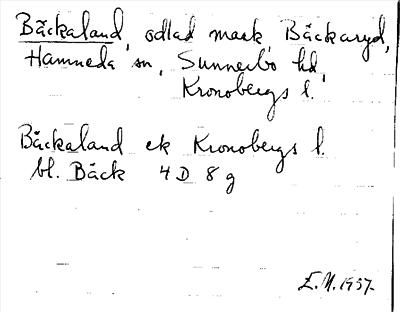 Bäckaland, odlad mark, Bäckaryd,
Hamneda sn, Sunnerbo hd,
Kronobergs l.
Bäckaland ek Kronobergs l.
bl. Bäck 4D 8g
E.M. 1937.